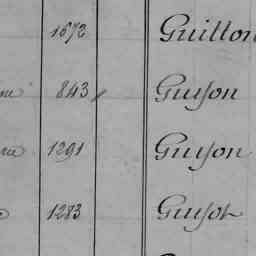 1672 Guillon
843 Guyon
1291 Guyon
1283 Guyot